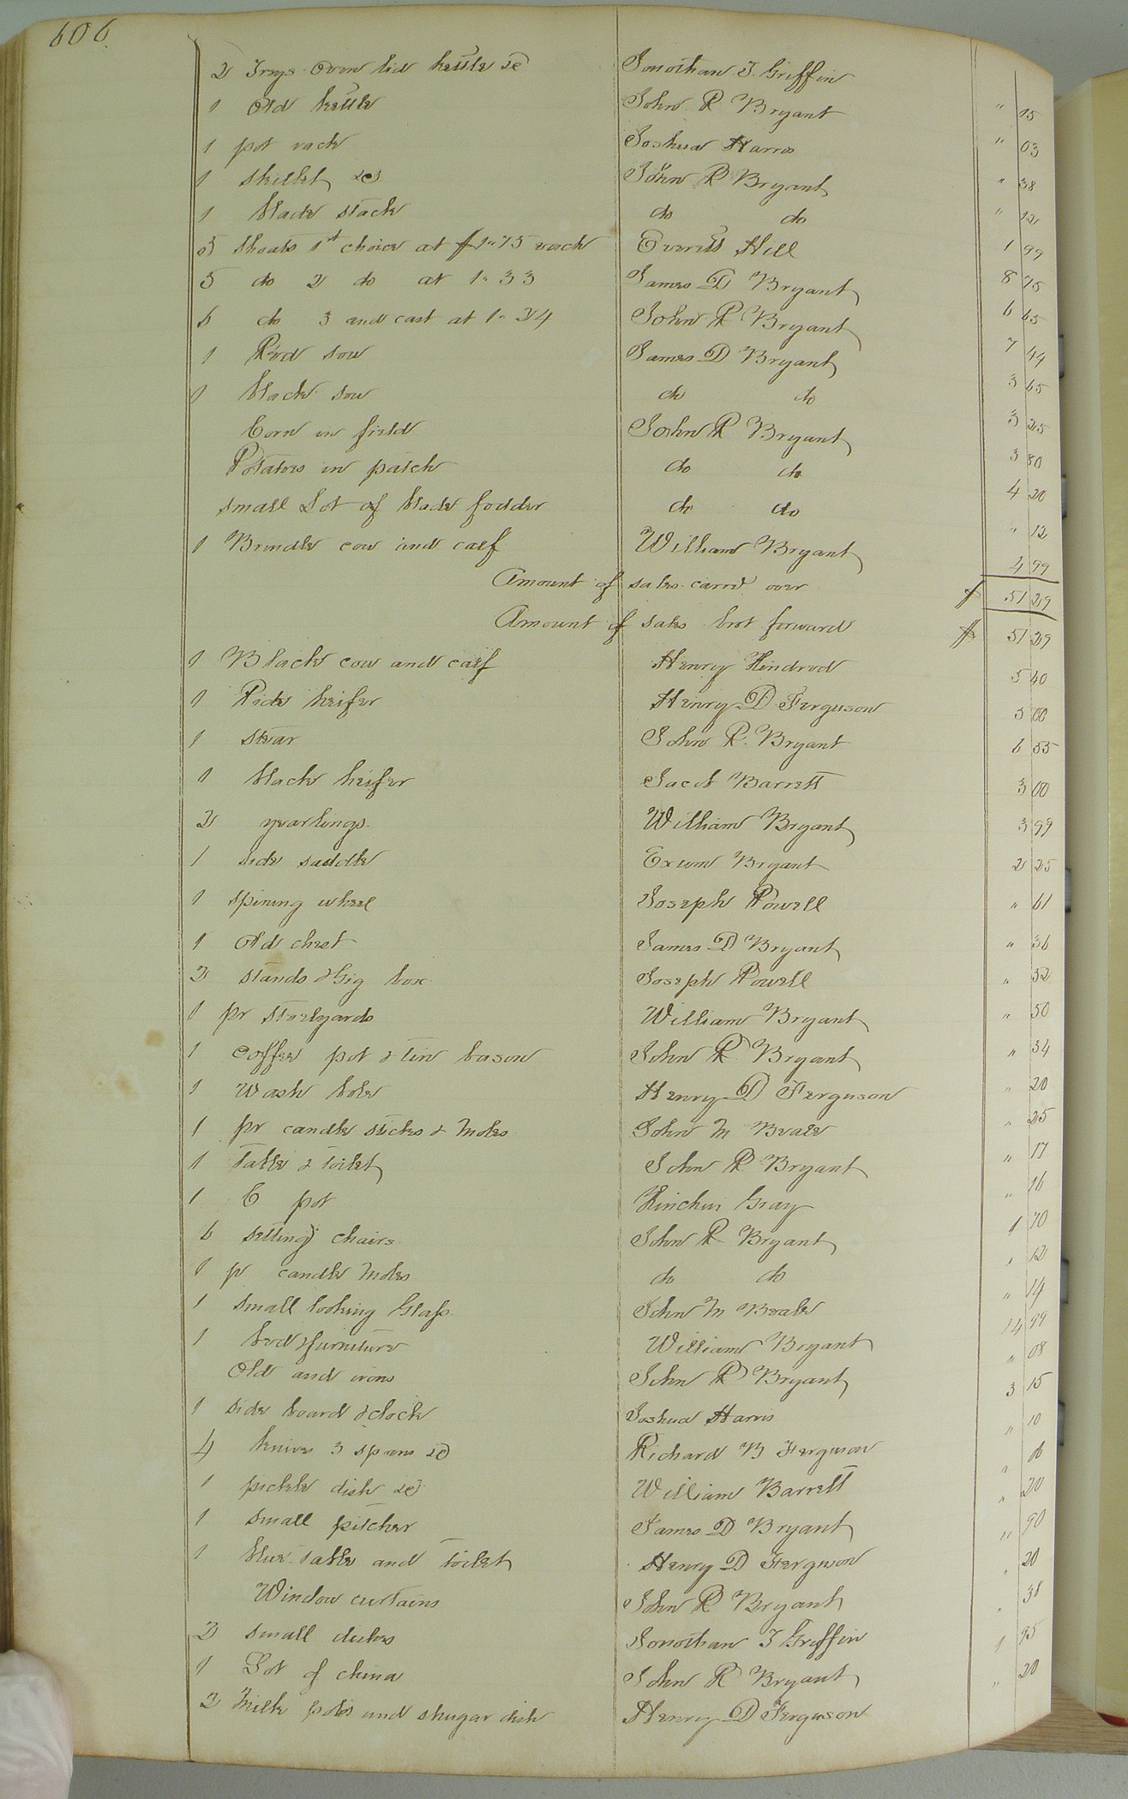 606.
2 Trays Oven lid kettle &c Jonothan T. Griffin " 15
1 Old kettle John R Bryant " 03
1 pot rack Joshua Harris " 38
1 skillet &c John R Bryant " 12
1 blade stack do do 1 99
5 Shoats 1st choice at $1"75 each Everitt Hill 8 75
5 do 2 do at 1"33 James D Bryant 6 65
6 do 3 and cast at 1"24 John R Bryant 7 44
1 Red sow James D Bryant 3 65
1 black sow do do 3 25
Corn in field John R Bryant 3 50
Potatoes in patch do do 4 20
small Lot of blade fodder do do " 12
1 Brindle cow and calf William Bryant 4 99
Amount of sales carrd over $ 51 29
Amount of sales brot forward $ 51 29
1 Black cow and calf Henry Kindred 5 40
1 Pide heifer Henry D Ferguson 5 00
1 stear John R. Bryant 6 55
1 black heifer Jacob Barrett 3 00
2 yearlings William Bryant 3 99
1 side saddle Exum Bryant 2 25
1 spining wheel Joseph Powell " 61
1 Old chest James D Bryant " 36
2 stands & Gig box Joseph Powell " 52
1 pr steelyards William Bryant " 50
1 coffee pot & tin bason John R Bryant " 34
1 Wash bole Henry D Ferguson " 20
1 pr candle sticks & moles John M Beale " 25
1 table & toilet John R Bryant " 17
1 C pot Hinchey Gray " 16
6 setting chairs John R Bryant 1 70
1 pr candle moles do do " 12
1 small looking Glass John M Beale " 14
1 bed & furniture William Bryant 14 99
Old and irons John R Bryant " 08
1 side board & clock Joshua Harris 3 15
4 knives 3 spoons &c Richard B Ferguson " 10
1 pickle dish &c William Barrett " 06
1 small pitcher James D Bryant " 20
1 blue table and toilet Henry D Ferguson " 90
Window curtains John R Bryant " 20
2 small dishes Jonothan T Griffin " 38
1 Lot of china John R Bryant 1 95
2 Milk pots and shugar dish Henry D Ferguson " 20